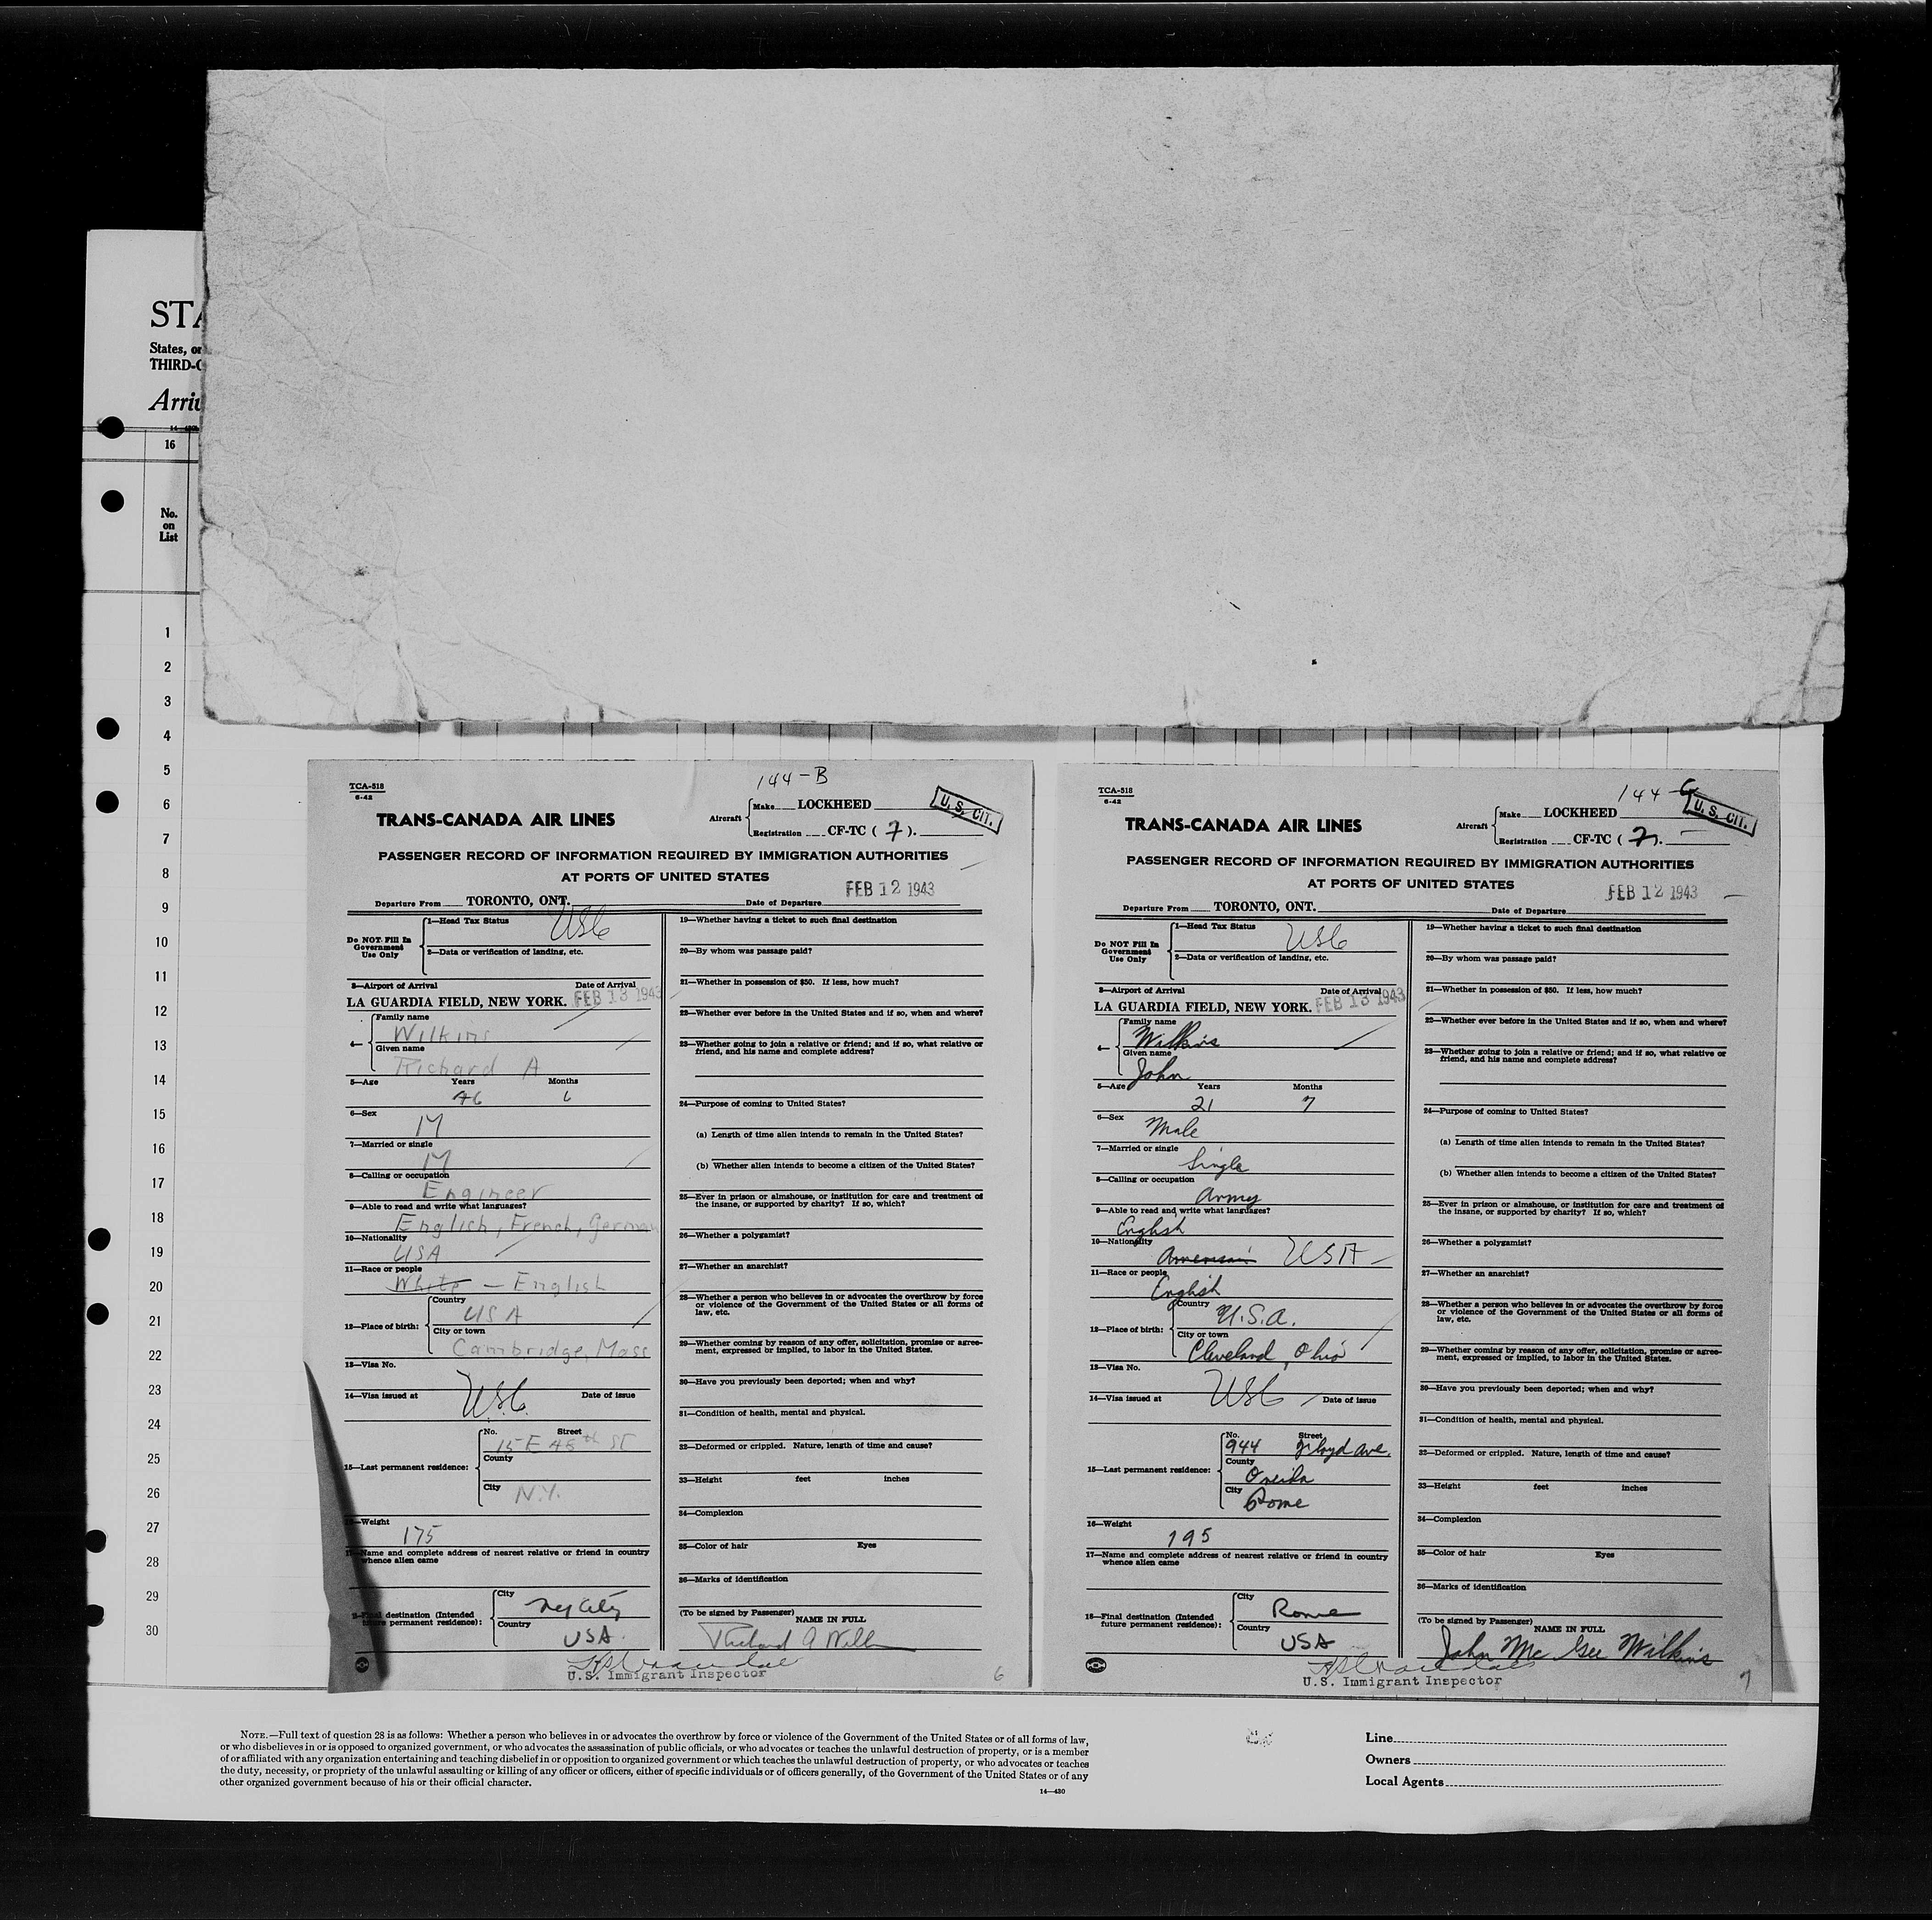 STA
States, or
THIRD-C
Arriv
16
No.
on
List
1
2
3
4
5
6
7
8
9
10
11
12
13
14
15
16
17
18
19
20
21
22
23
24
25
26
27
28
29
30
144-B
TCA-518
6-42
TRANS-CANADA AIR LINES
Aircraft
Make LOCKHEED
Registration CF-TC ( 7 ).
U. S. CIT.
PASSENGER RECORD OF INFORMATION REQUIRED BY IMMIGRATION AUTHORITIES
AT PORTS OF UNITED STATES
FEB 12 1943
Departure From TORONTO, ONT. Date of Departure
Do NOT Fill In
Government
Use Only
1—Head Tax Status USC
2—Data or verification of landing, etc.
3—Airport of Arrival Date of Arrival
LA GUARDIA FIELD, NEW YORK. FEB 13 1943
4—
Family name
Wilkins
Given name
Richard A
5—Age Years Months
46 6
6—Sex
M
7—Married or single
M
8—Calling or occupation
Engineer
9—Able to read and write what languages?
English, French, German
10—Nationality
USA
11—Race or people
White — English
12—Place of birth:
Country
USA
City or town
Cambridge, Mass
13—Visa No.
14—Visa issued at USC Date of issue
15—Last permanent residence:
No. Street
15 E 48th ST
County
City
N.Y.
16—Weight
175
17—Name and complete address of nearest relative or friend in country
whence alien came
18—Final destination (Intended
future permanent residence):
City
Ny City
Country
USA.
U.S. Immigrant Inspector
19—Whether having a ticket to such final destination
20—By whom was passage paid?
21—Whether in possession of $50. If less, how much?
22—Whether ever before in the United States and if so, when and where?
23—Whether going to join a relative or friend; and if so, what relative or
friend, and his name and complete address?
24—Purpose of coming to United States?
(a) Length of time alien intends to remain in the United States?
(b) Whether alien intends to become a citizen of the United States?
25—Ever in prison or almshouse, or institution for care and treatment of
the insane, or supported by charity? If so, which?
26—Whether a polygamist?
27—Whether an anarchist?
28—Whether a person who believes in or advocates the overthrow by force
or violence of the Government of the United States or all forms of
law, etc.
29—Whether coming by reason of any offer, solicitation, promise or agree-
ment, expressed or implied, to labor in the United States.
30—Have you previously been deported; when and why?
31—Condition of health, mental and physical.
32—Deformed or crippled. Nature, length of time and cause?
33—Height feet inches
34—Complexion
35—Color of hair Eyes
36—Marks of identification
(To be signed by Passenger)
NAME IN FULL
Richard A Wilkins
6
144-C
TCA-518
6-42
TRANS-CANADA AIR LINES
Aircraft
Make LOCKHEED
Registration CF-TC ( 7 ).
U. S. CIT.
PASSENGER RECORD OF INFORMATION REQUIRED BY IMMIGRATION AUTHORITIES
AT PORTS OF UNITED STATES
FEB 12 1943
Departure From TORONTO, ONT. Date of Departure
Do NOT Fill In
Government
Use Only
1—Head Tax Status USC
2—Data or verification of landing, etc.
3—Airport of Arrival Date of Arrival
LA GUARDIA FIELD, NEW YORK. FEB 13 1943
4—
Family name
Wilkins
Given name
John
5—Age Years Months
21 7
6—Sex
Male
7—Married or single
Single
8—Calling or occupation
Army
9—Able to read and write what languages?
English
10—Nationality
American USA
11—Race or people
English
12—Place of birth:
Country
U.S.A.
City or town
Cleveland, Ohio
13—Visa No.
14—Visa issued at USC Date of issue
15—Last permanent residence:
No. Street
944 Floyd Ave.
County
Oneida
City
Rome
16—Weight
195
17—Name and complete address of nearest relative or friend in country
whence alien came
18—Final destination (Intended
future permanent residence):
City
Rome
Country
USA
U.S. Immigrant Inspector
19—Whether having a ticket to such final destination
20—By whom was passage paid?
21—Whether in possession of $50. If less, how much?
22—Whether ever before in the United States and if so, when and where?
23—Whether going to join a relative or friend; and if so, what relative or
friend, and his name and complete address?
24—Purpose of coming to United States?
(a) Length of time alien intends to remain in the United States?
(b) Whether alien intends to become a citizen of the United States?
25—Ever in prison or almshouse, or institution for care and treatment of
the insane, or supported by charity? If so, which?
26—Whether a polygamist?
27—Whether an anarchist?
28—Whether a person who believes in or advocates the overthrow by force
or violence of the Government of the United States or all forms of
law, etc.
29—Whether coming by reason of any offer, solicitation, promise or agree-
ment, expressed or implied, to labor in the United States.
30—Have you previously been deported; when and why?
31—Condition of health, mental and physical.
32—Deformed or crippled. Nature, length of time and cause?
33—Height feet inches
34—Complexion
35—Color of hair Eyes
36—Marks of identification
(To be signed by Passenger)
NAME IN FULL
John Mc Gee Wilkins
7
NOTE.—Full text of question 28 is as follows: Whether a person who believes in or advocates the overthrow by force or violence of the Government of the United States or of all forms of law,
or who disbelieves in or is opposed to organized government, or who advocates the assassination of public officials, or who advocates or teaches the unlawful destruction of property, or is a member
of or affiliated with any organization entertaining and teaching disbelief in or opposition to organized government or which teaches the unlawful destruction of property, or who advocates or teaches
the duty, necessity, or propriety of the unlawful assaulting or killing of any officer or officers, either of specific individuals or of officers generally, of the Government of the United States or of any
other organized government because of his or their official character.
14—430
Line
Owners
Local Agents